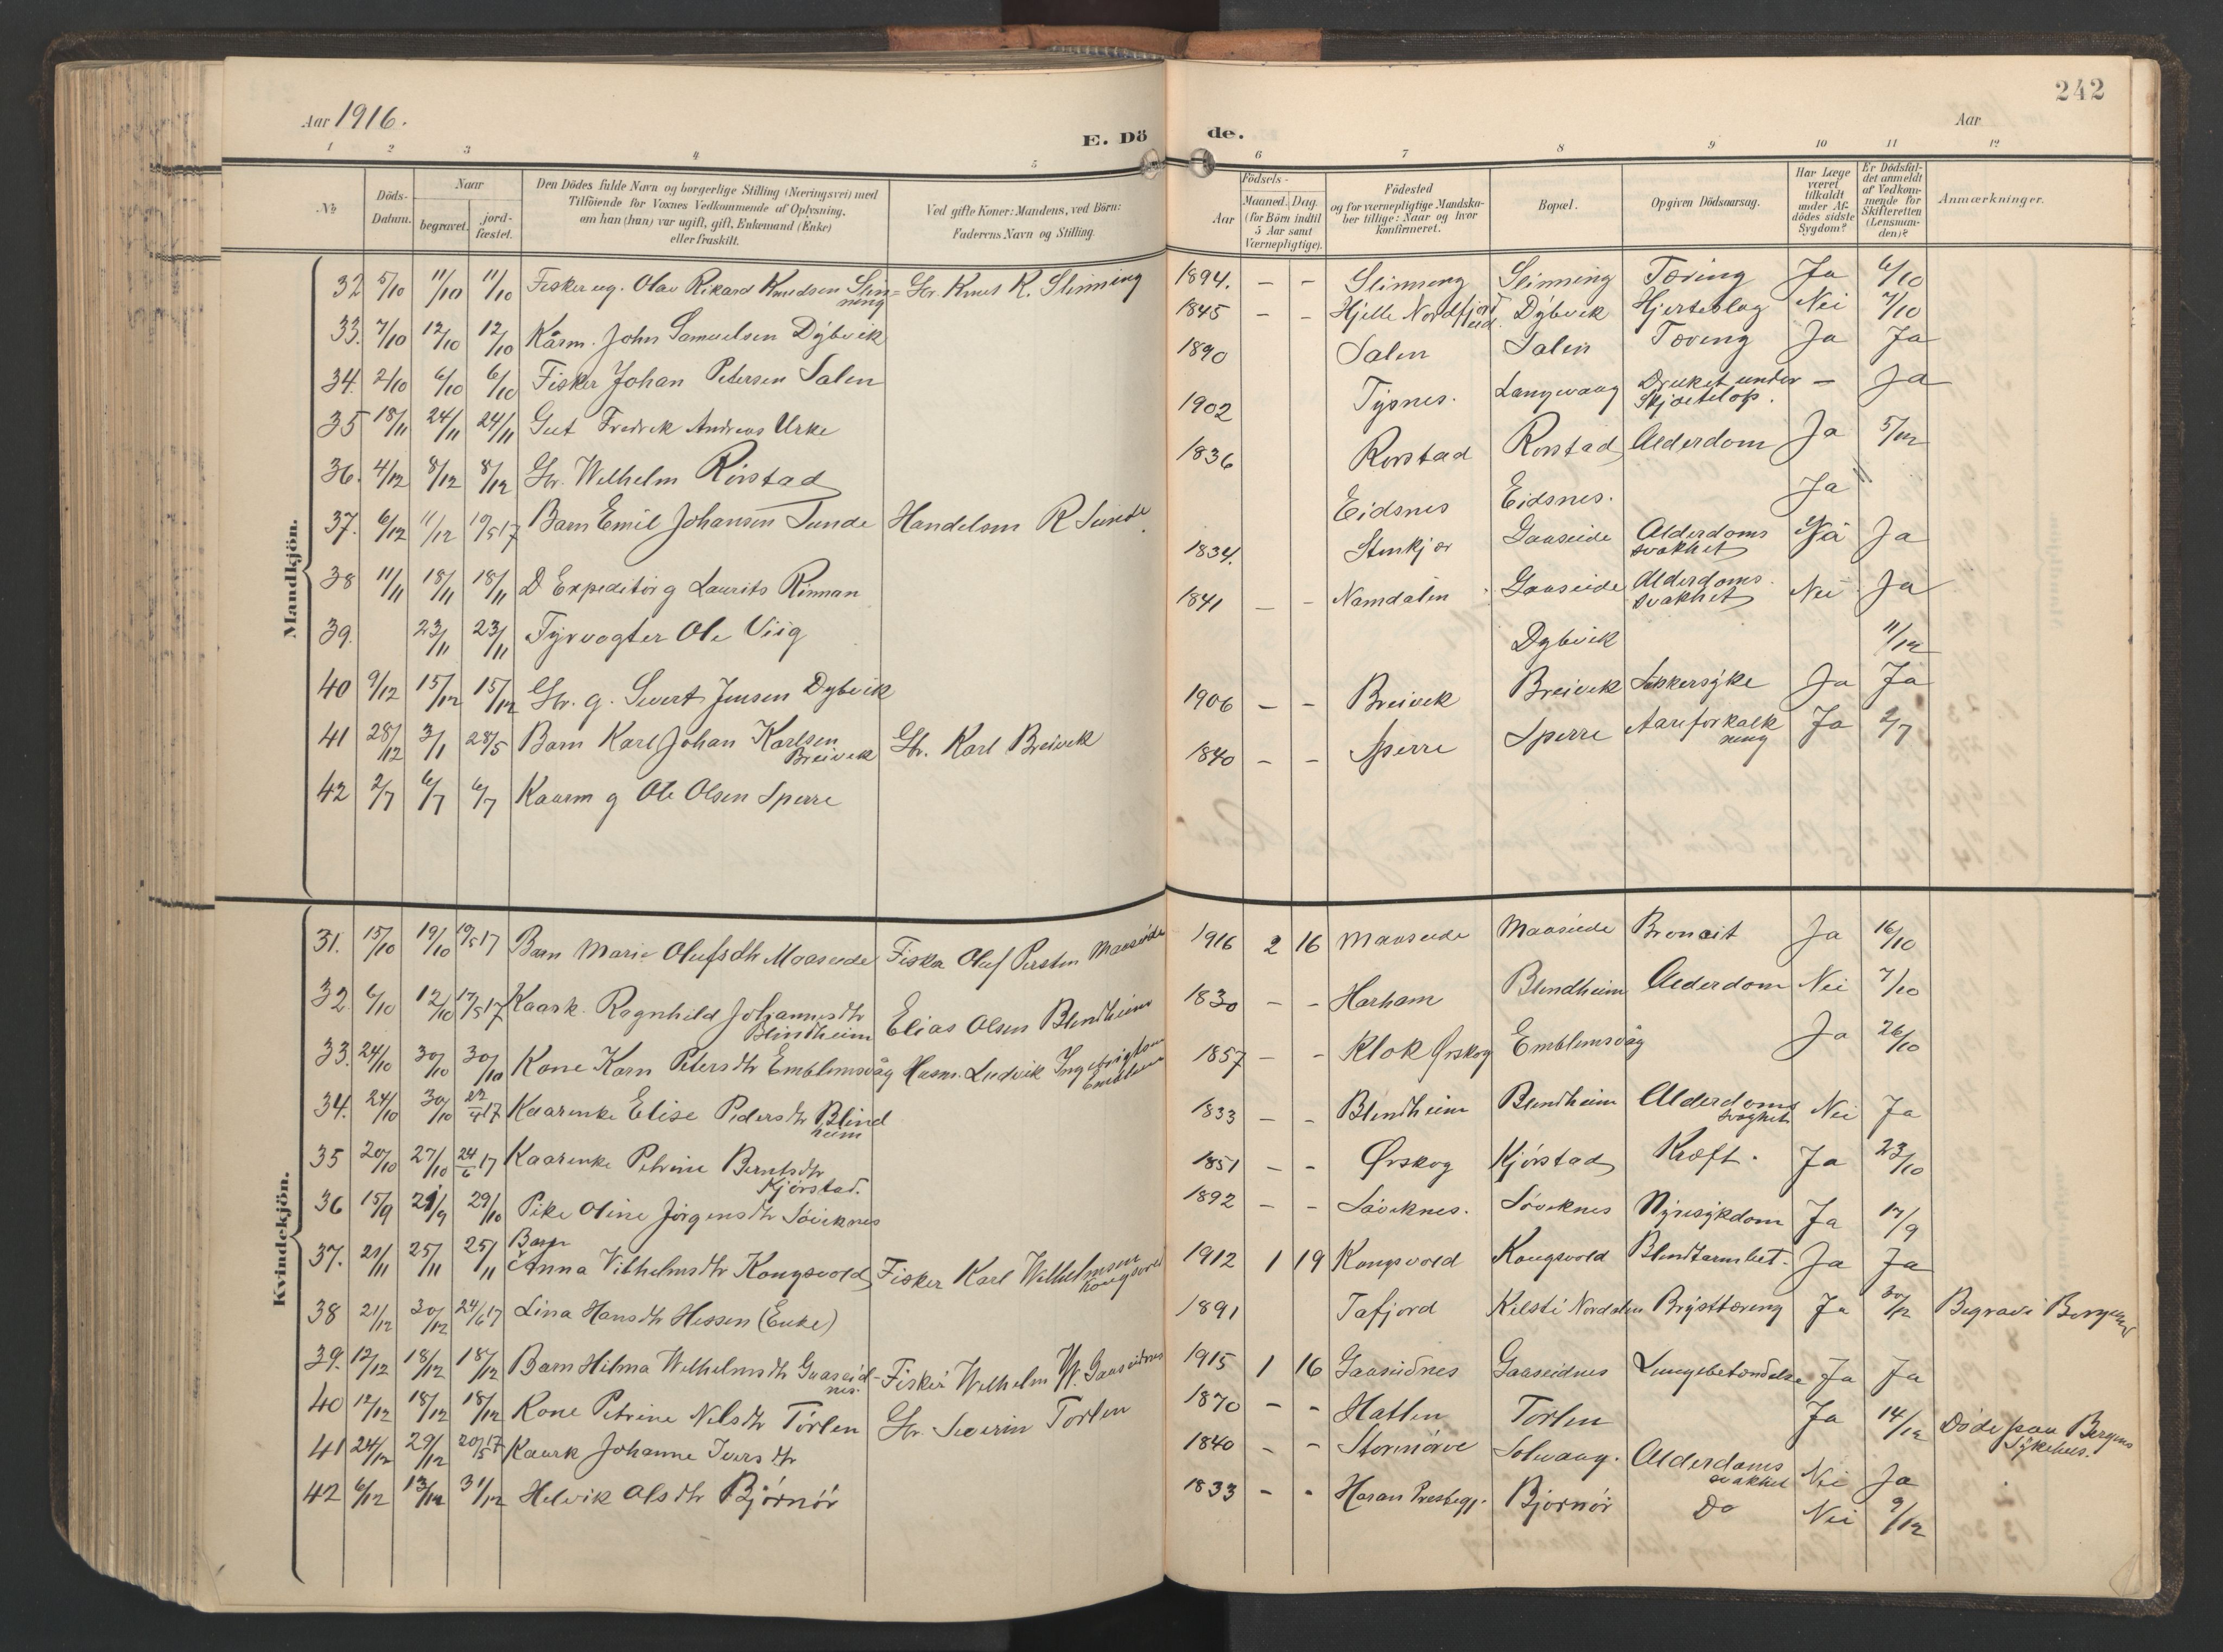 242
Aar 1916.
E. Dö de.
Aar
1 2 3 4 5 6 7 8 9 10 11 12
№
Döds-Datum.
Naar
begravet.
jord-fæstet.
Den Dödes fulde Navn og borgerlige Stilling (Næringsvei) med
Tilföiende for Voxnes Vedkommende af Oplysning,
om han (hun) var ugift, gift, Enkemand (Enke)
eller fraskilt.
Ved gifte Koner: Mandens, ved Börn:
Faderens Navn og Stilling.
Födsels-
Aar
Maaned. Dag.
(for Börn indtil
5 Aar samt
Værnepligtige).
Födested
og for værnepligtige Mandska-
ber tillige: Naar og hvor
konfirmeret.
Bopæl.
Opgiven Dödsaarsag.
Har Læge
været
tilkaldt
under Af-
dödes sidste
Sygdom?
Er Dödsfal-
det anmeldt
af Vedkom-
mende for
Skifteretten
(Lensman-
den)?
Anmærkninger.
Mandkjön.
32 5/10 11/10 11/10 Fisker ug. Olav Rikard Knudsen Slinning Gr. Knut R. Slinning 1894. – – Slinning Slinning Tæring Ja 6/10
33. 7/10 12/10 12/10 Kårm. John Samuelsen Dybvik 1845 – – Hjelle Nordfjordeid Dybvik Hjerteslag Nei 7/10
34. 2/10 6/10 6/10 Fisker Johan Petersen Salen 1890 Salen Salen Tæring Ja Ja
35 18/11 24/11 24/11 Gut Fredrik Andreas Urke 1902 Tysnes. Langevaag Druknet under Skjøtelop. – Ja
36. 4/12 8/12 8/12 Gr. Wilhelm Rörstad 1836 Rorstad Rorstad Alderdom Ja 5/12
37. 6/12 11/12 19/5 17 Barn Emil Johansen Sunde Handelsm R Sunde. Eidsnes Eidsnes. Ja "
38 11/11 18/11 18/11 D Expeditör g Laurits Rinnan 1834. Stenkjær Gaaseide Alderdoms svakhet Ja Ja
39. 23/11 23/11 Fyrvogter Ole Viig 1841 – – Namdalen Gaaseide Alderdoms svakhet Nei Ja
40 9/12 15/12 15/12 Gr. g. Sivert Jensen Dybvik Dybvik 11/12
41 28/12 3/1 28/5 Barn Karl Johan Karlsen Breivik Gr. Karl Breivik 1906 – – Breivik Breivik Sukkersyke Ja Ja
42 2/7 6/7 6/7 Kaarm g Ole Olsen Sperre 1840 – – Sperre Sperre Aareforkalkning Ja 2/7
Kvindekjön.
31. 15/10 19/10 19/5 17 Barn Marie Olufsdtr Maaseide Fisker Oluf Maaseide 1916 2 16 Maaseide Maaseide Broncit Ja 16/10
32 6/10 12/10 17/5 17 Kaark. Ragnhild Johannesdtr Blindheim Elias Olsen Blindheim 1830 – – Harham Blindheim Alderdom Nei 7/10
33. 24/10 30/10 30/10 Kone Karn Petersdtr Emblemsvåg Husm. Ludvik Ingebrigtsen Emblem 1857 – – Klok Ørskog Emblemsvåg Ja 26/10
34. 24/10 30/10 22/4 17 Kaarenke Elise Pedersdtr Blindheim 1833 – – Blindheim Blindheim Alderdoms svaghet Nei Ja
35 20/10 27/10 24/6 17 Kaarenke Petrine Berntsdtr Kjörstad. 1851 – – Ørskog Kjörstad Kræft. Ja 23/10
36 15/9 21/9 29/10 Pike Oline Jörgensdtr Söviknes 1892 – – Söviknes. Söviknes Nyresykdom Ja 17/9
37. 21/11 25/11 25/11 Barn Anna Vilhelmsdtr Kongsvold Fisker Karl Wilhelmsen Kongsvold 1912 1 19 Kongsvold Kongsvold Blindtarmbet. Ja Ja
38 21/12 30/12 24/6 17 Lina Hansdtr Hessen (Enke) 1891 Tafjord Kilsti Nordalen Brysttæring Ja 30/12 Begravd Bergen
39. 12/12 18/12 18/12 Barn Hilma Wilhelmsdtr Gaaseidnes. Fisker Wilhelm W. Gaaseidnes 1915 1 16 Gaaseidnes Gaaseidnes Lungebetændelse Ja Ja
40 12/12 18/12 18/12 Kone Petrine Nilsdtr Törlen Gr. Severin Torlen 1870 – – Hatlen Torlen Ja 14/12 Döde paa Bergens Sykehus.
41 24/12 29/12 20/5 17 Kaark Johanne Iversdtr 1840 – – Stormörve Solevaag. Alderdoms svakhet Nei Ja
42 6/12 13/12 31/12 Helvik Olsdtr Björnör 1833 – – Haran Prestegj. Bjornör Do Nei 9/12